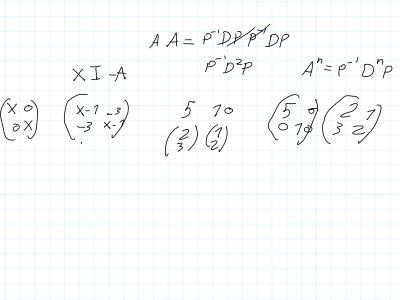 A A = P⁻¹DP P⁻¹DP
P⁻¹D²P
Aⁿ = P⁻¹DⁿP
XI-A
(X 0
0 X)
(X-1 -3
-3 X-1)
5 10
(2
3) (1
2)
(5 0
0 10)
(2 1
3 2)